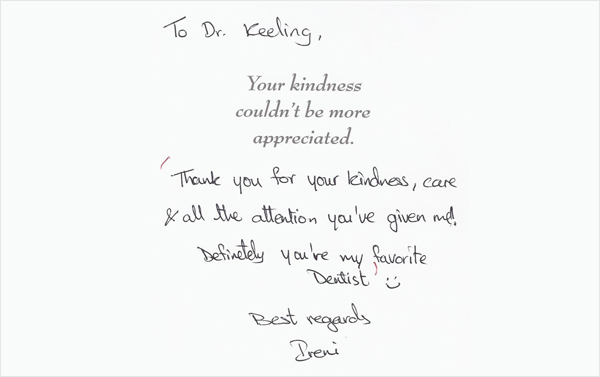 To Dr. Keeling,
Your kindness
couldn't be more
appreciated.
Thank you for your kindness, care
& all the attention you've given me!
Definetely you're my favorite
Dentist :)
Best regards
Ireni